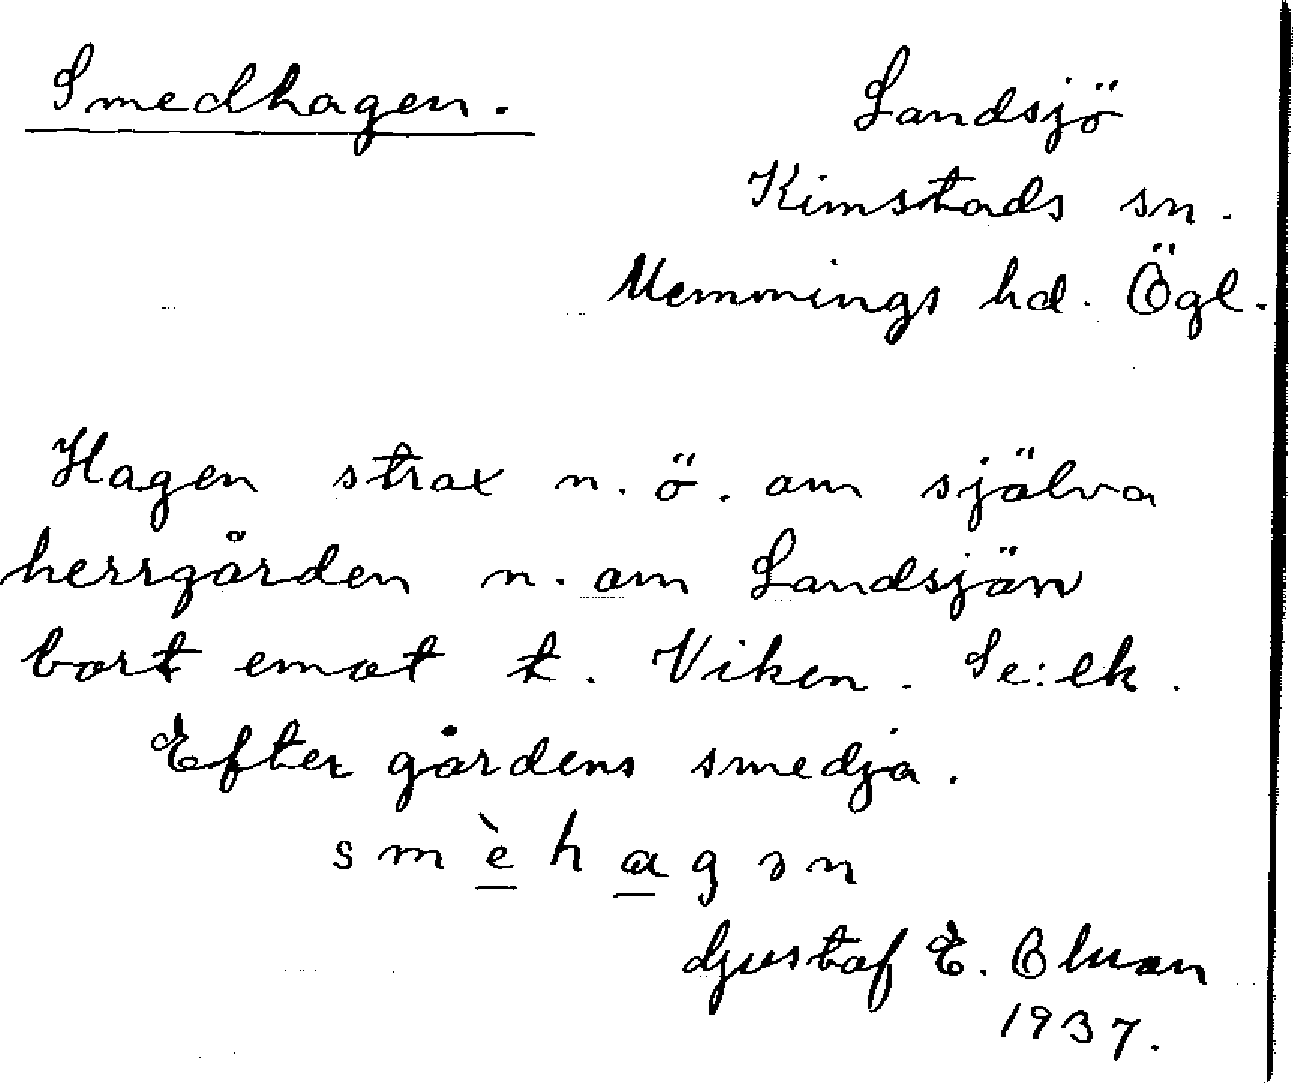 Smedhagen.
Landsjö
Kimstads sn.
Memmings hd. Ögl.
Hagen strax n. ö. om själva
herrgården n. om Landsjön
bort emot t. Viken. Se: ek.
Efter gårdens smedja.
smèhagən
Gustaf E. Olsson
1937.